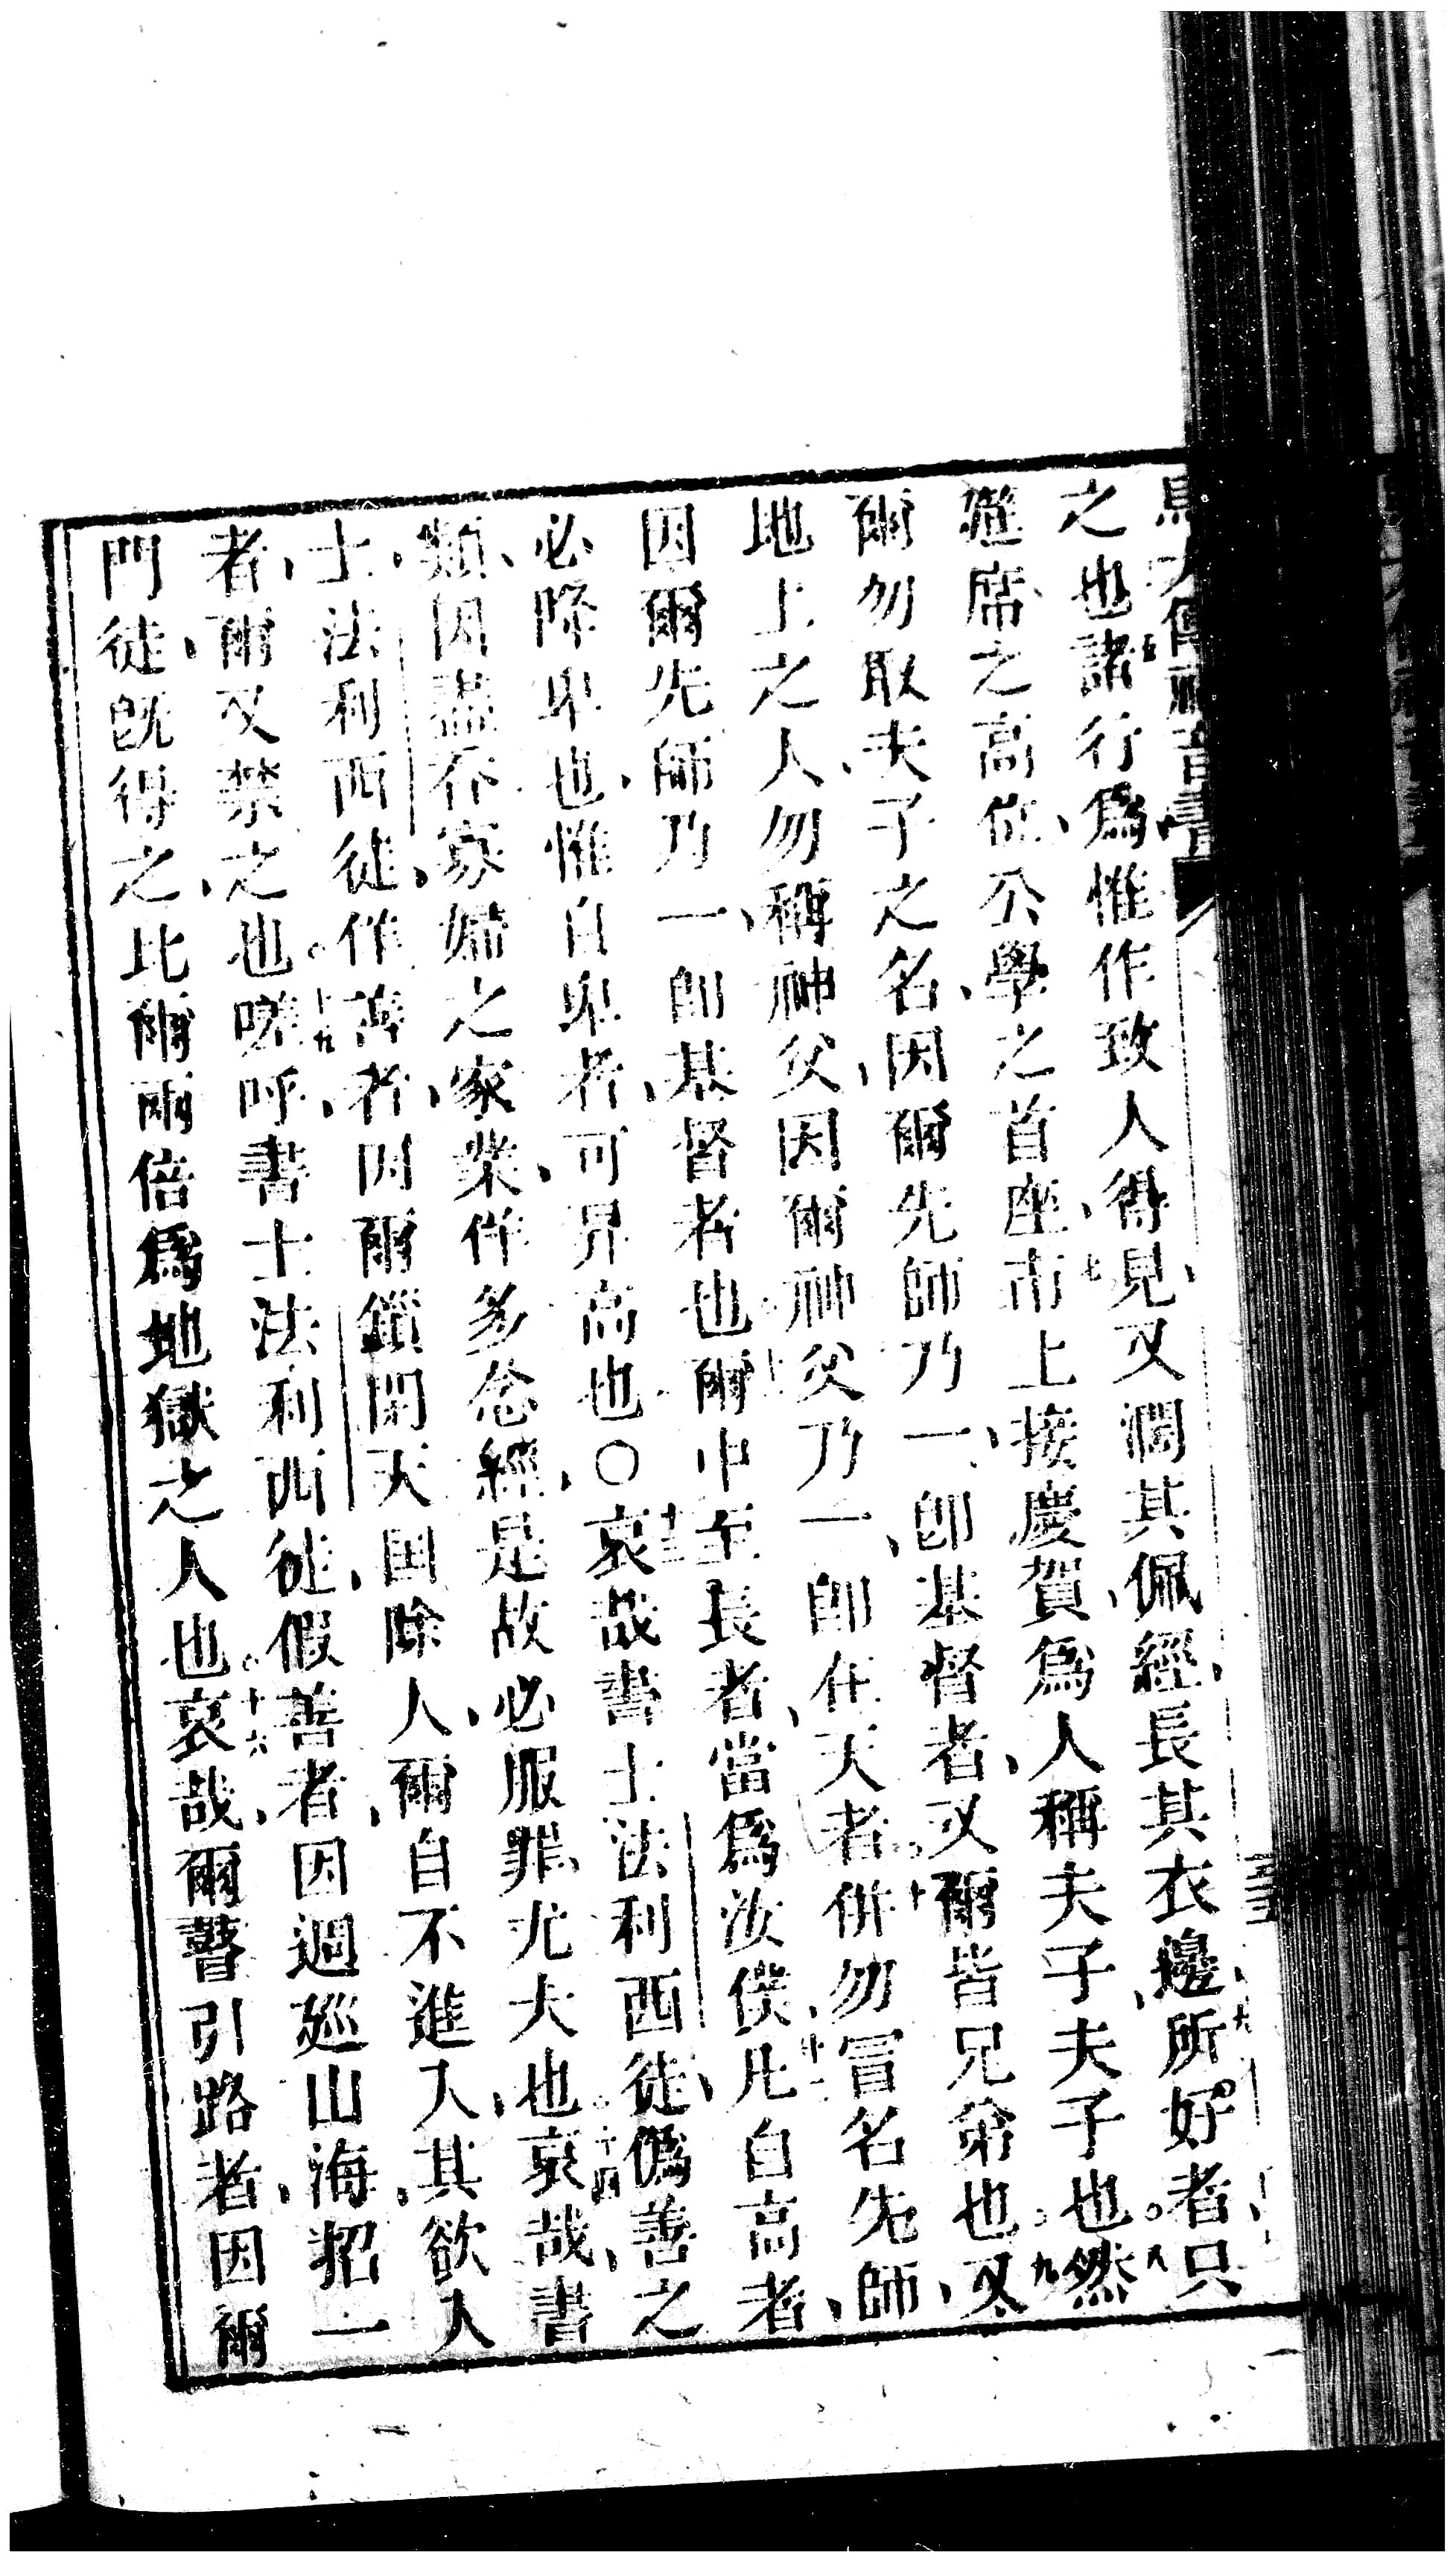 之也諸行爲惟作致人得見又濶其佩經長其衣邊所好者只
筵席之高位公學之首座市上接慶賀爲人稱夫子夫子也然
爾勿取夫子之名因爾先師乃一即基督者又爾皆兄弟也又
地上之人勿稱神父因爾神父乃一即在天者併勿冒名先師
因爾先師乃一即基督者也爾中至長者當爲汝僕凡自高者
必降卑也惟自卑者可昇高也〇哀哉書士法利西徒僞善之
類因盡吞寡婦之家業佯多念經是故必服罪尤大也哀哉書
士法利西徒佯善者因爾鎖閉天国除人爾自不進入其欲入
者爾又禁之也嗟呼書士法利西徒假善者因週廵山海招一
門徒既得之比爾兩倍爲地獄之人也哀哉爾瞽引路者因爾